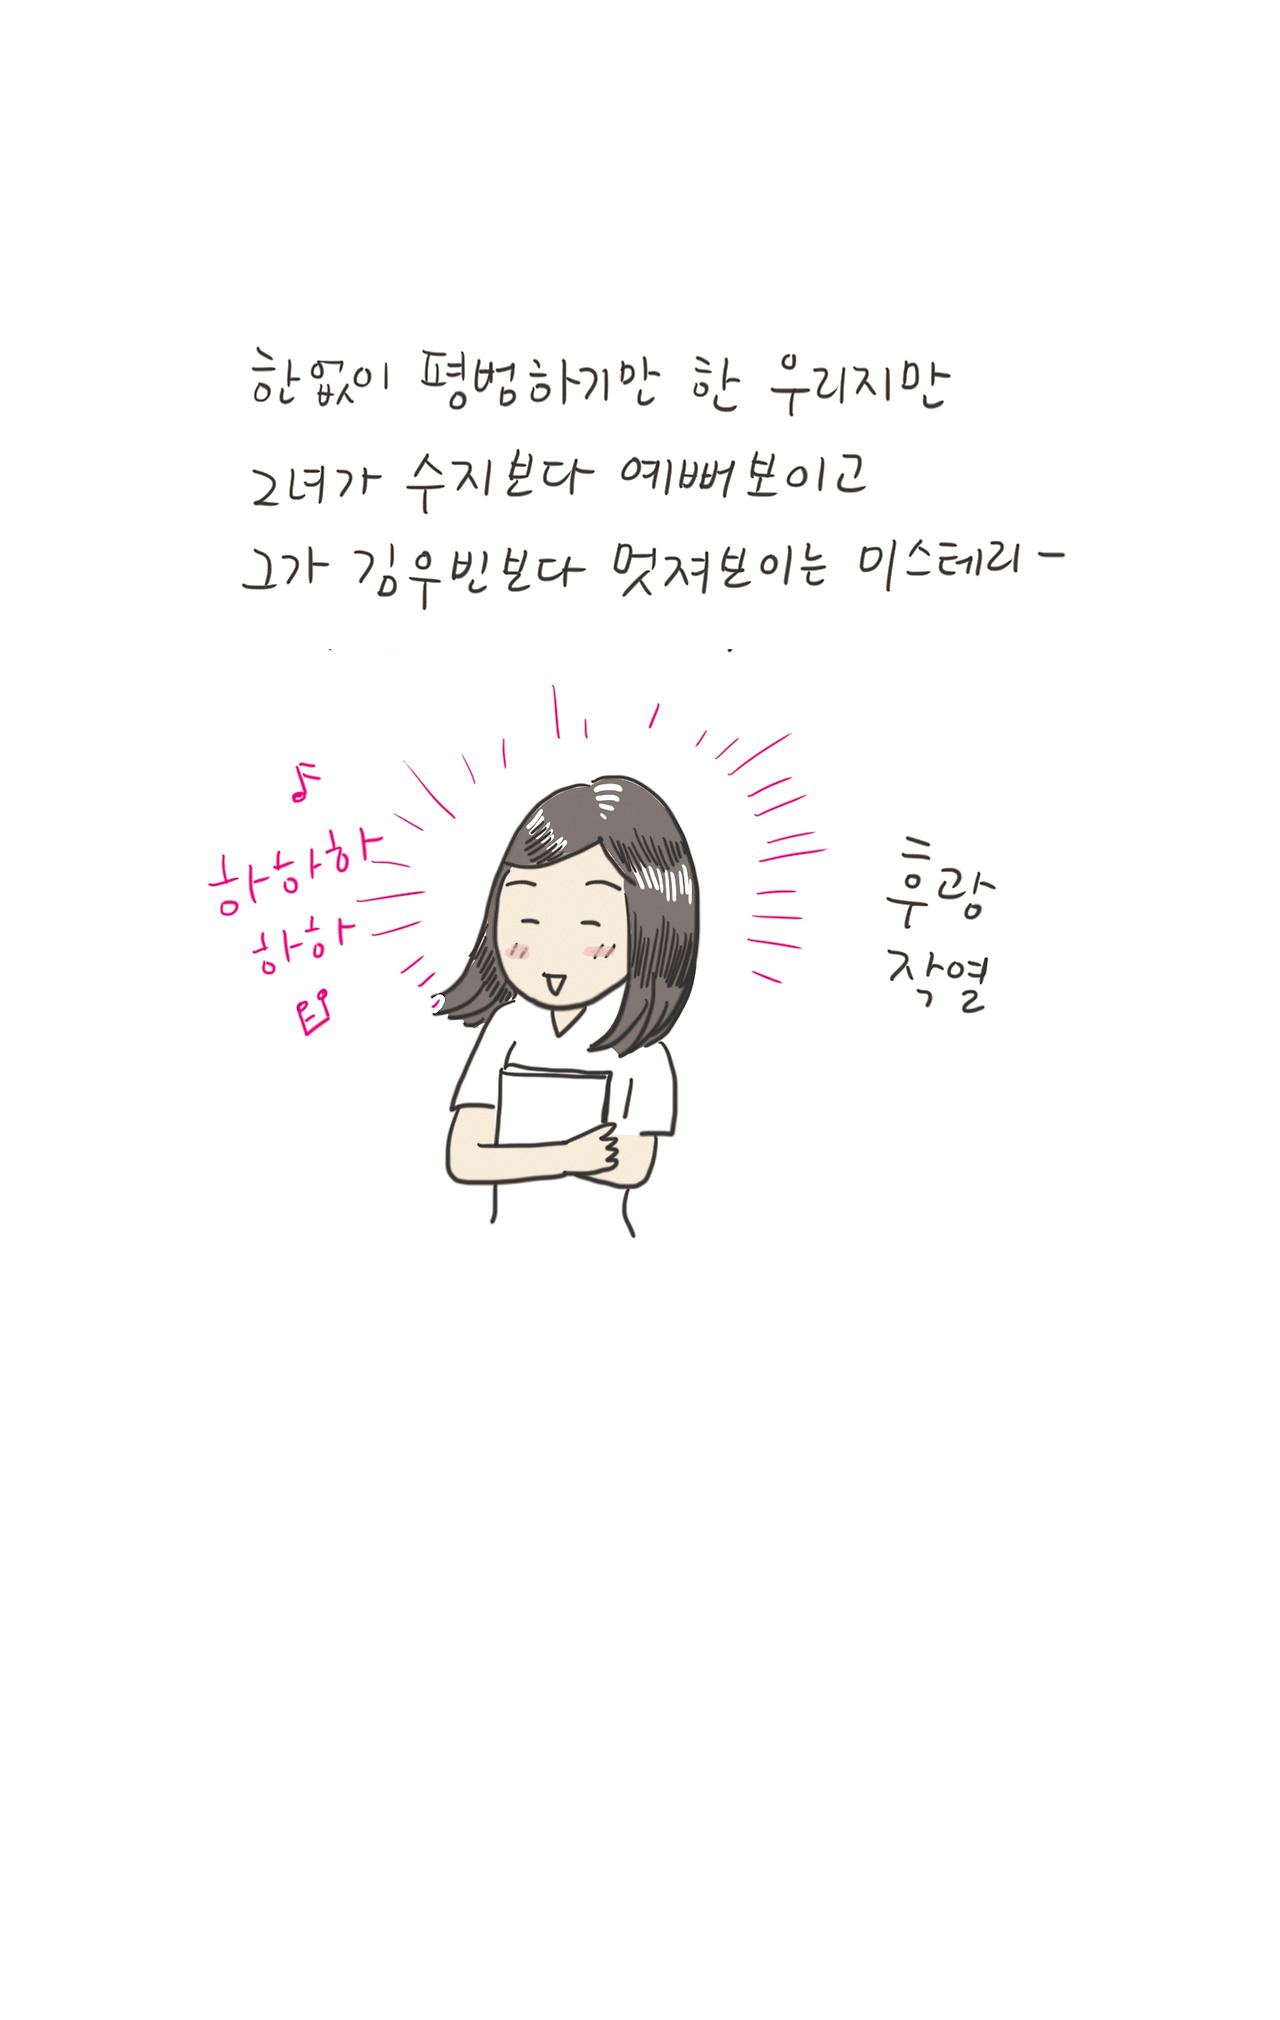 한없이 평범하기만 한 우리지만
그녀가 수지보다 예뻐보이고
그가 김우빈보다 멋져보이는 미스테리-
♪
하하하
하하
후광
작열